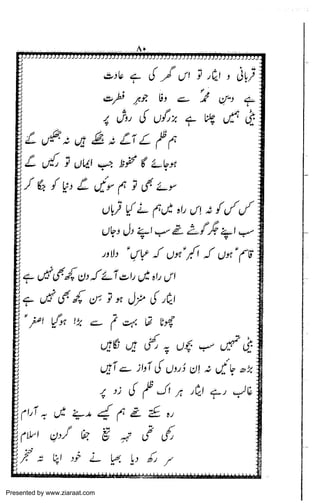 ۸۰
قربانی و ایثار تو اس گھر کی ہے عادت
ہے دین محمدؐ سے وفا جوہر فطرت
بیٹی ہمیں چلنا ہے بزرگوں کی روش پر
ہم ظلم کے آگے نہ جھکے ہیں نہ جھکیں گے
ہوجائے گا محفوظ جب ایماں تو رکیں گے
سوئے بھی تو ہم سوئیں گے دنیا کو جگا کر
کس کس کو نہ اس راہ میں ہم نے کیا قرباں
سب اپنے جگر گوشے تھے سب اپنے دل و جاں
قاسمؑ ہوں کہ اکبرؑ ہوں کہ عباسؑ دلاور
اس راہ میں رات آئے کہ دن کچھ بھی نہیں ہے
ایثار کی منزل ہو تو سن کچھ بھی نہیں ہے
چھوٹا تھا بہت تم سے بڑا ہوگیا اصغرؑ
بیٹی تمہیں سب بچوں پہ رکھنی ہیں نگاہیں
بڑھ جائیں نہ ان دُرّوں کی آواز سے آہیں
غالب رہے ایثار ہر اک ظلم کی زد پر
رہ سکتے تھے ہم کیسے مدینے میں بہ آرام
رکھی تھی تہہ تیغ جفا گردن اسلام
سر رکھ دیا بھیا نے خود اپنا تہ خنجر
Presented by www.ziaraat.com